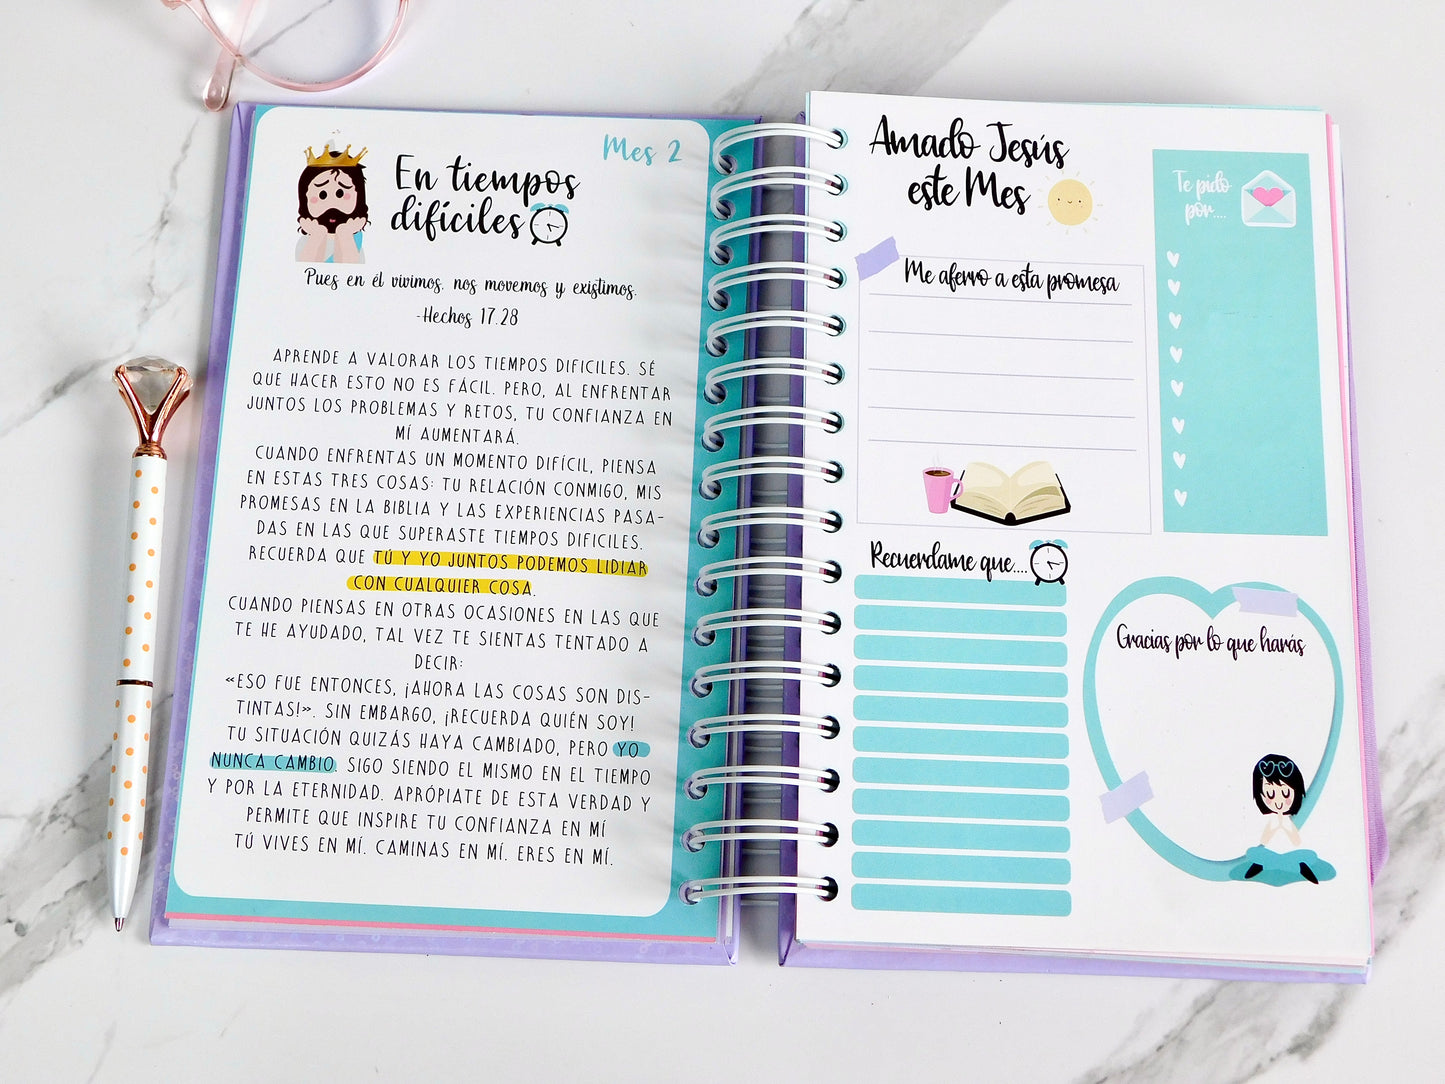 Mes 2
En tiempos
difíciles
Pues en él vivimos, nos movemos y existimos.
-Hechos 17.28
APRENDE A VALORAR LOS TIEMPOS DIFICILES. SÉ
QUE HACER ESTO NO ES FÁCIL. PERO, AL ENFRENTAR
JUNTOS LOS PROBLEMAS Y RETOS, TU CONFIANZA EN
MÍ AUMENTARÁ.
CUANDO ENFRENTAS UN MOMENTO DIFÍCIL, PIENSA
EN ESTAS TRES COSAS: TU RELACIÓN CONMIGO, MIS
PROMESAS EN LA BIBLIA Y LAS EXPERIENCIAS PASA-
DAS EN LAS QUE SUPERASTE TIEMPOS DIFICILES.
RECUERDA QUE TÚ Y YO JUNTOS PODEMOS LIDIAR
CON CUALQUIER COSA.
CUANDO PIENSAS EN OTRAS OCASIONES EN LAS QUE
TE HE AYUDADO, TAL VEZ TE SIENTAS TENTADO A
DECIR:
«ESO FUE ENTONCES, ¡AHORA LAS COSAS SON DIS-
TINTAS!». SIN EMBARGO, ¡RECUERDA QUIÉN SOY!
TU SITUACIÓN QUIZÁS HAYA CAMBIADO, PERO YO
NUNCA CAMBIO. SIGO SIENDO EL MISMO EN EL TIEMPO
Y POR LA ETERNIDAD. APRÓPIATE DE ESTA VERDAD Y
PERMITE QUE INSPIRE TU CONFIANZA EN MÍ
TÚ VIVES EN MÍ. CAMINAS EN MÍ. ERES EN MÍ.
Amado Jesús
este Mes
Me aferro a esta promesa
Te pido
por....
Recuerdame que....
Gracias por lo que harás